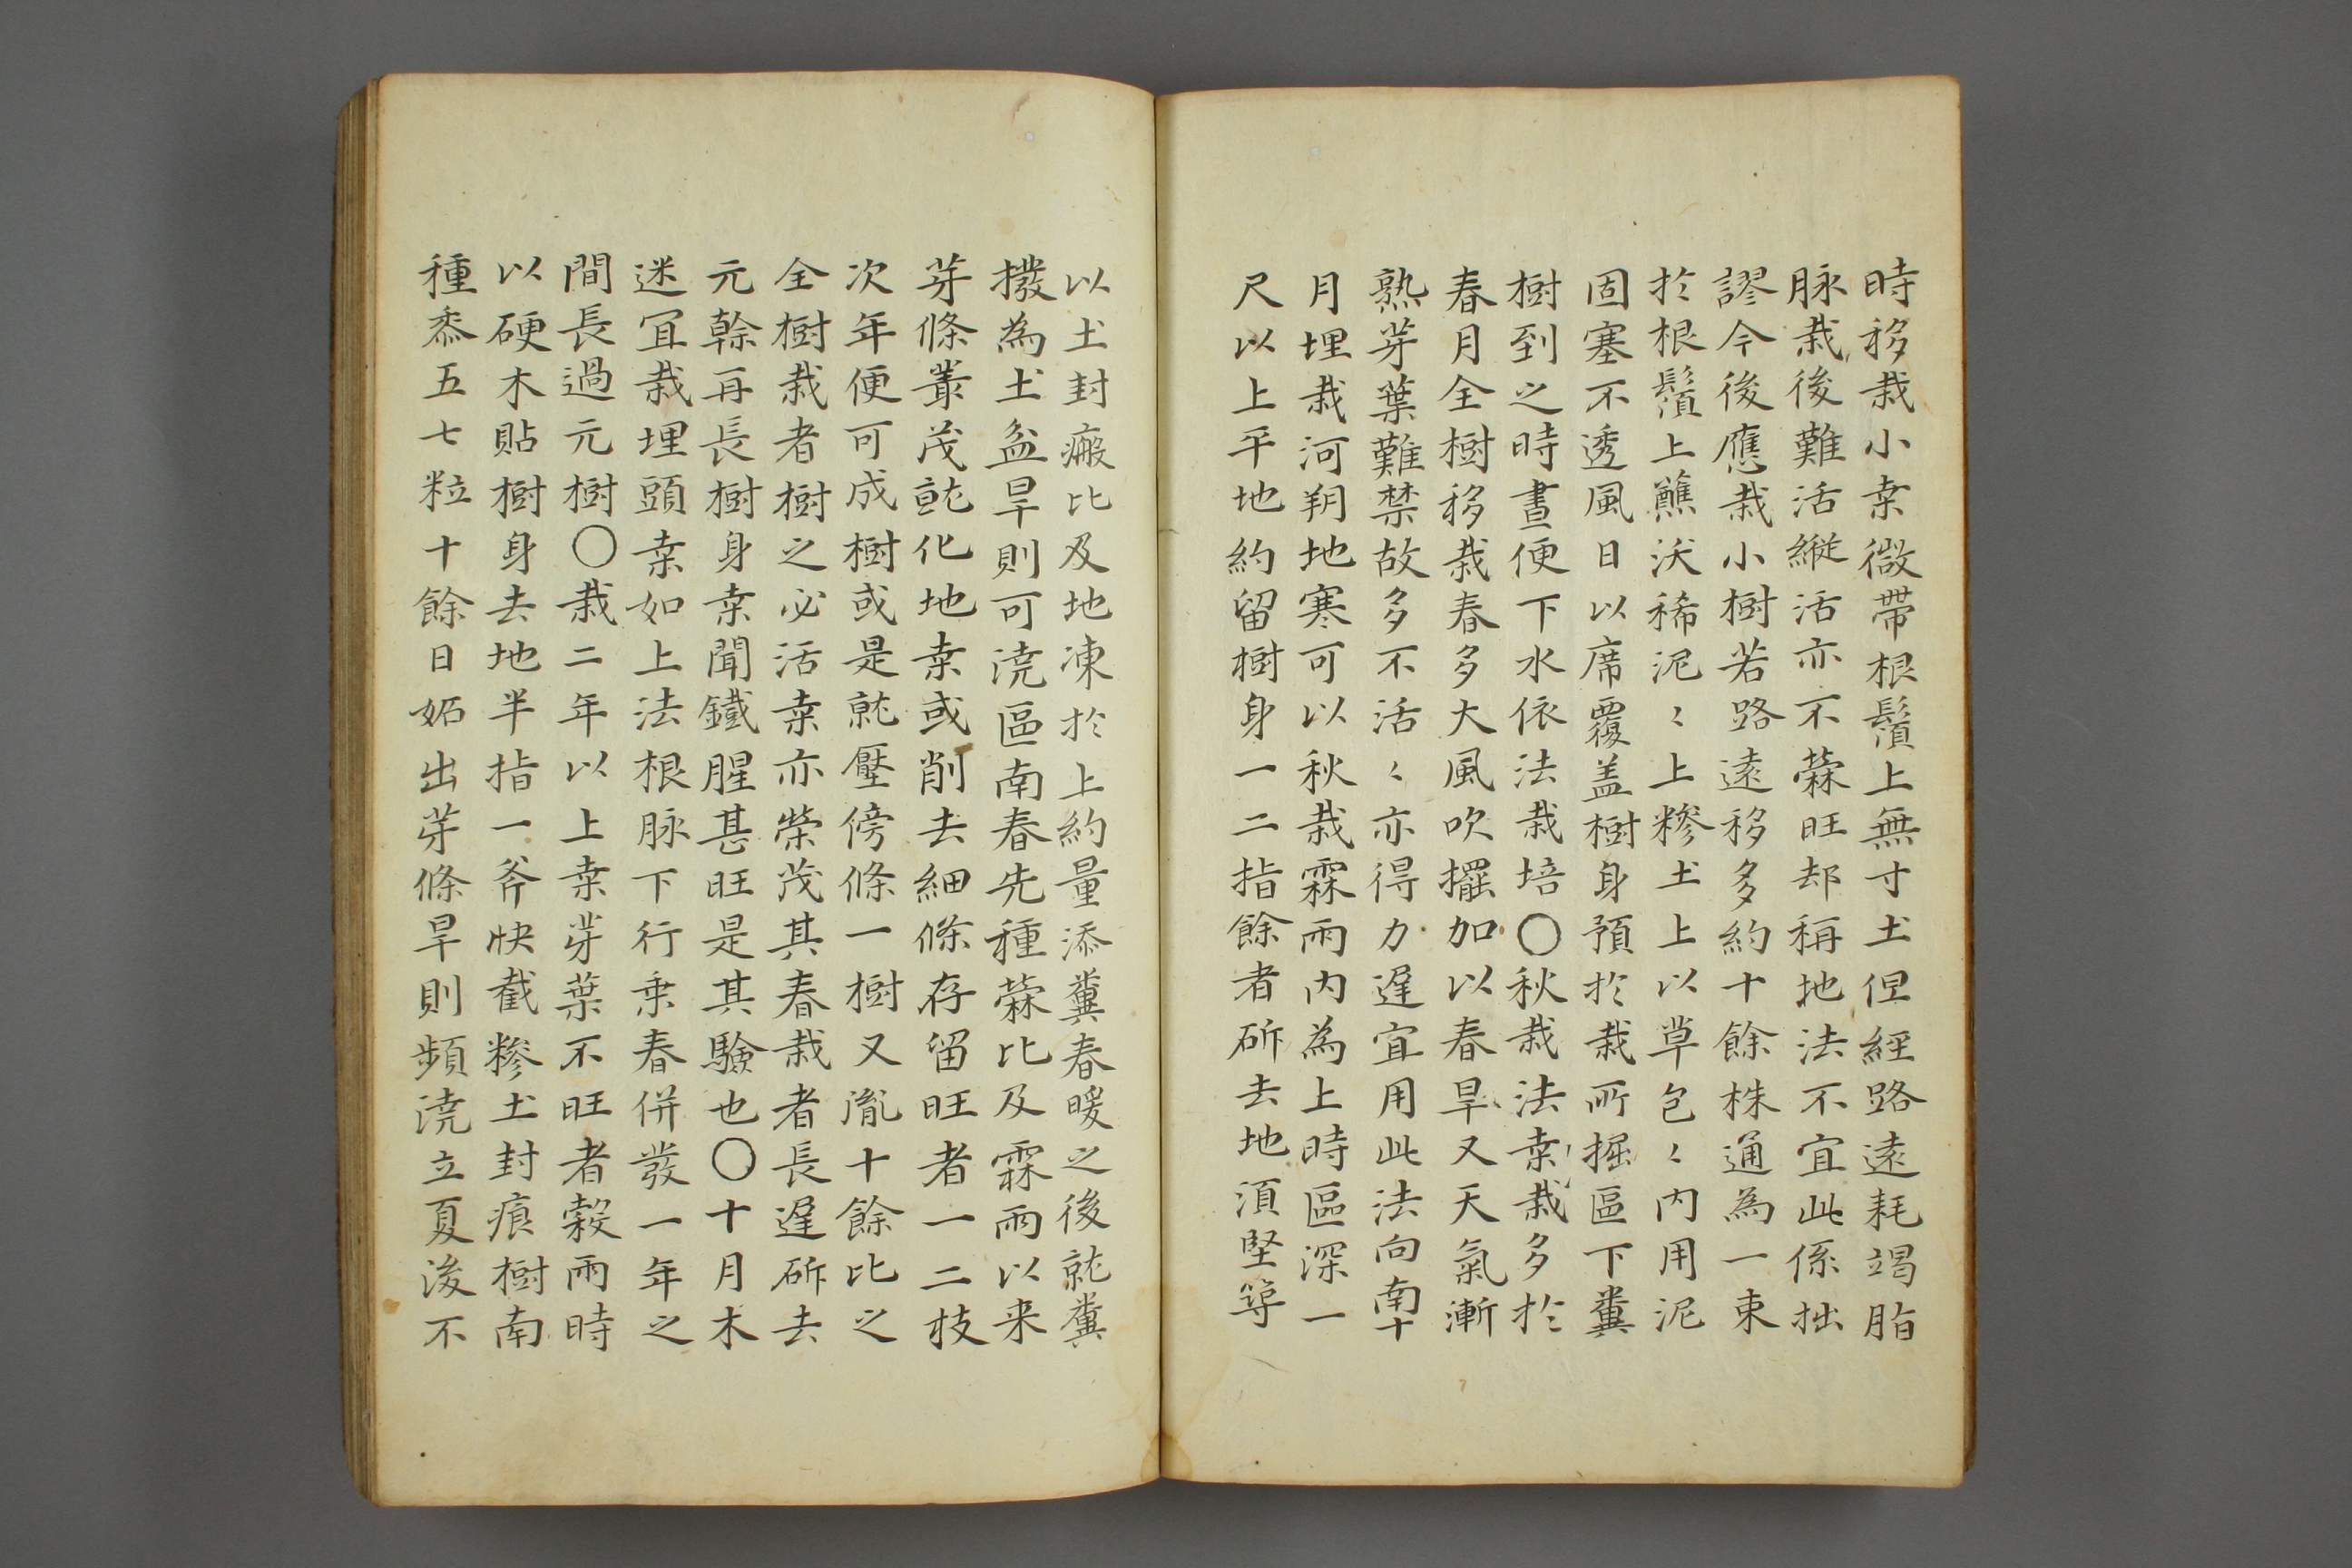 時移栽小桒微帶根鬚上無寸土但經路遠耗竭脂
脉栽後難活縱活亦不榮旺却稱地法不宜此係拙
謬今後應栽小樹若路遠移多約十餘株通為一束
於根鬚上蘸沃稀泥〻上糝土上以草包〻內用泥
固塞不透風日以席覆盖樹身預於栽所掘區下糞
樹到之時晝便下水依法栽培〇秋栽法桒栽多於
春月全樹移栽春多大風吹擺加以春旱又天氣漸
熟芽葉難禁故多不活〻亦得力遲宜用此法向南十
月埋栽河朔地寒可以秋栽霖雨內為上時區深一
尺以上平地約留樹身一二指餘者斫去地湏堅築
以土封瘢比及地凍於上約量添糞春暖之後就糞
撥為土盆旱則可澆區南春先種蘇比及霖雨以来
芽條叢茂就化地桒或削去細條存留旺者一二枝
次年便可成樹或是就壓傍條一樹又胤十餘比之
全樹栽者樹之必活桒亦榮茂其春栽者長遲斫去
元榦再長樹身桒聞鐵腥甚旺是其驗也〇十月木
迷冝栽埋頭桒如上法根脉下行乗春併發一年之
間長過元樹〇栽二年以上桒芽葉不旺者穀雨時
以硬木貼樹身去地半指一斧快截糝土封痕樹南
種黍五七粒十餘日始出芽條旱則頻澆立夏後不